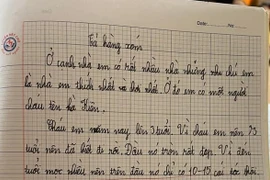 Date: No.
Tả hàng xóm
Ở cạnh nhà em có rất nhiều nhà nhưng nhà chú em
là nhà em thích nhất và chơi nhất. Ở đó em có một người
cháu tên là Hiên.
Cháu em năm nay lên 3 tuổi. Vì cháu em nên 23
tuổi nên đã biết đi rồi. Đầu nó tròn rất đẹp. Vì đến
tuổi mọc nhiều nên trên đầu nó chỉ có 10-15 cái tóc thôi.